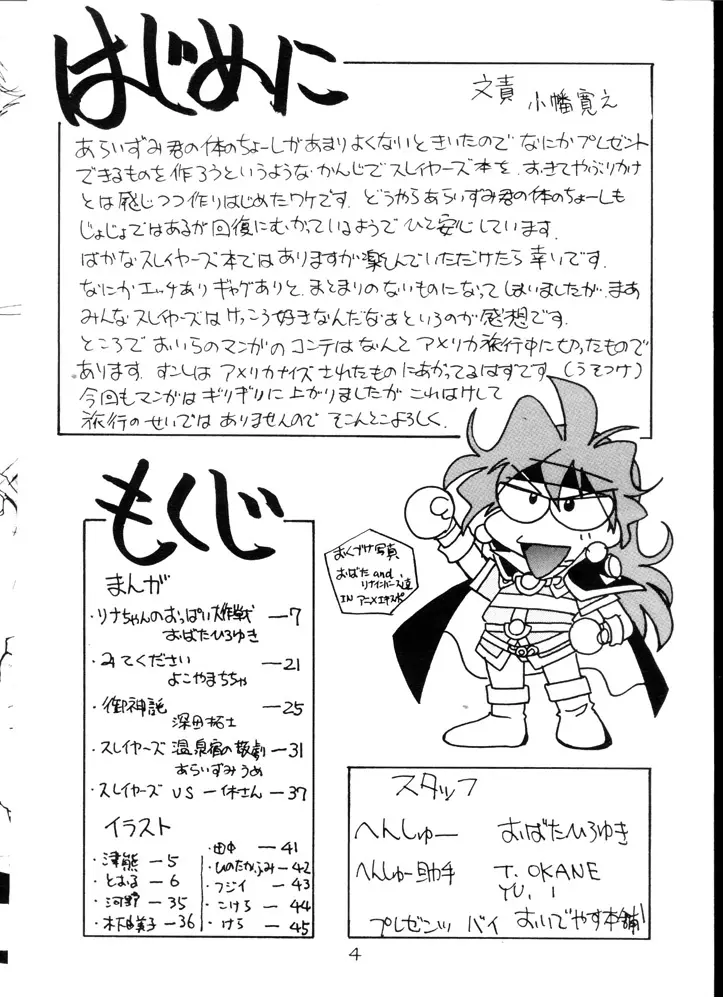 はじめに
文責 小幡寛之
あらいずみ君の体のちょーしがあまりよくないときいたので なにかプレゼント
できるものを作ろうというような・かんじでスレイヤーズ本を、おきてやぶりかけ
とは感じつつ作りはじめたワケです。どうやらあらいずみ君の体のちょーしも
じょじょではあるが回復にむかっているようで ひと安心しています.
ばかなスレイヤーズ本ではありますが楽しんでいただけたら幸いです.
なにかエッチありギャグありと、まとまりのないものになってしまいましたが、まあ
みんなスレイヤーズはけっこう好きなんだなあというのが感想です.
ところでおいらのマンガのコンテはなんとアメリカ旅行中に切ったもので
あります. すこしはアメリカナイズされたものにあがってるはずです (うそつけ)
今回もマンガはギリギリに上がりましたが これはけして
旅行のせいではありませんので そこんとこよろしく.
もくじ
まんが
・リナちゃんのおっぱい大作戦 —7
おばたひろゆき
・みてください —21
よこやまちちゃ
・御神託 —25
深田拓士
・スレイヤーズ 温泉宿の 劇 —31
あらいずみうめ
・スレイヤーズ VS 一休さん —37
イラスト
・津熊 —5
・とおる —6
・河野 —35
・木下 美子 —36
・田中 —41
・ひのたかふみ —42
・フジイ —43
・こけら —44
・けら —45
おくづけ写真
おばた and
リナインバース達
IN アニメエキスポ
スタッフ
へんしゅー おばたひろゆき
へんしゅー助手 T. OKANE
YU. I
プレゼンツ バイ おいでやす本舗
4